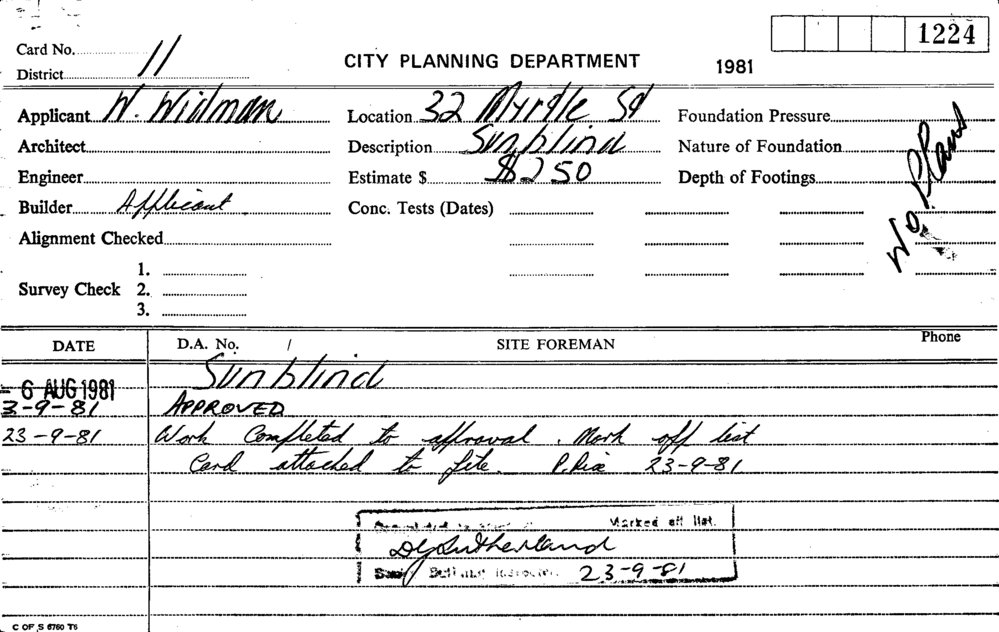 1224
Card No.
District 11
CITY PLANNING DEPARTMENT
1981
Applicant W. Widman
Location 32 Myrtle St
Foundation Pressure
Architect
Description Sunblind
Nature of Foundation
Engineer
Estimate $ $250
Depth of Footings
Builder Applicant
Conc. Tests (Dates)
No Plans
Alignment Checked
1.
Survey Check 2.
3.
DATE D.A. No. / SITE FOREMAN Phone
Sunblind
- 6 AUG 1981
3-9-81 APPROVED
23-9-81 Work Completed to approval. Mark off list
Card attached to file. P. Rix 23-9-81
Marked off list.
DJSutherland
Building Inspector. 23-9-81
C OF S 6760 T6